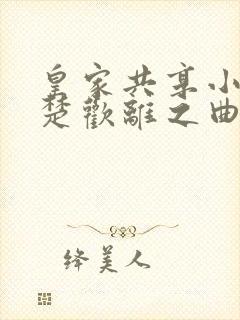 皇家共享小
楚歡離之曲
绛美人